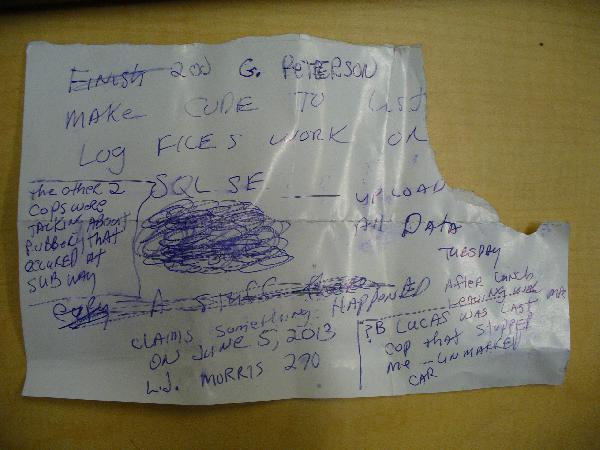 FINISH 200 G. PETERSON
MAKE CODE TO LIST
LOG FILES WORK ON
SQL SE
UPLOAD
All DATA
TUESDAY
the other 2
COPS WERE
TALKING ABOUT
RUBBERY THAT
OCCURED AT
SUBWAY
A STUFF
CLAIMS SOMETHING HAPPENED
ON JUNE 5, 2013
L.J. MORRIS 290
After lunch
?B LUCAS WAS LAST
COP that STOPPED
me - UNMARKED
CAR